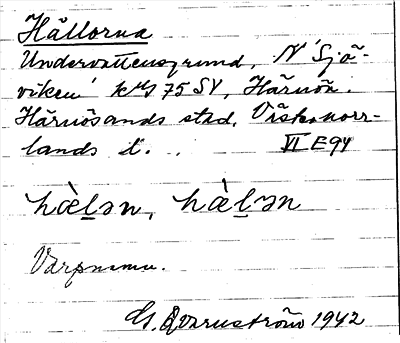 Hällorna
Undervattensgrund, N 'Sjö-
viken' kms 75 SV, Härnön.
Härnösands stad, Västernorr-
lands l. VI E 94
hæ̀l̠ən, hæ̀l̠ən
Varpnamn.
G. Qvarnström 1942